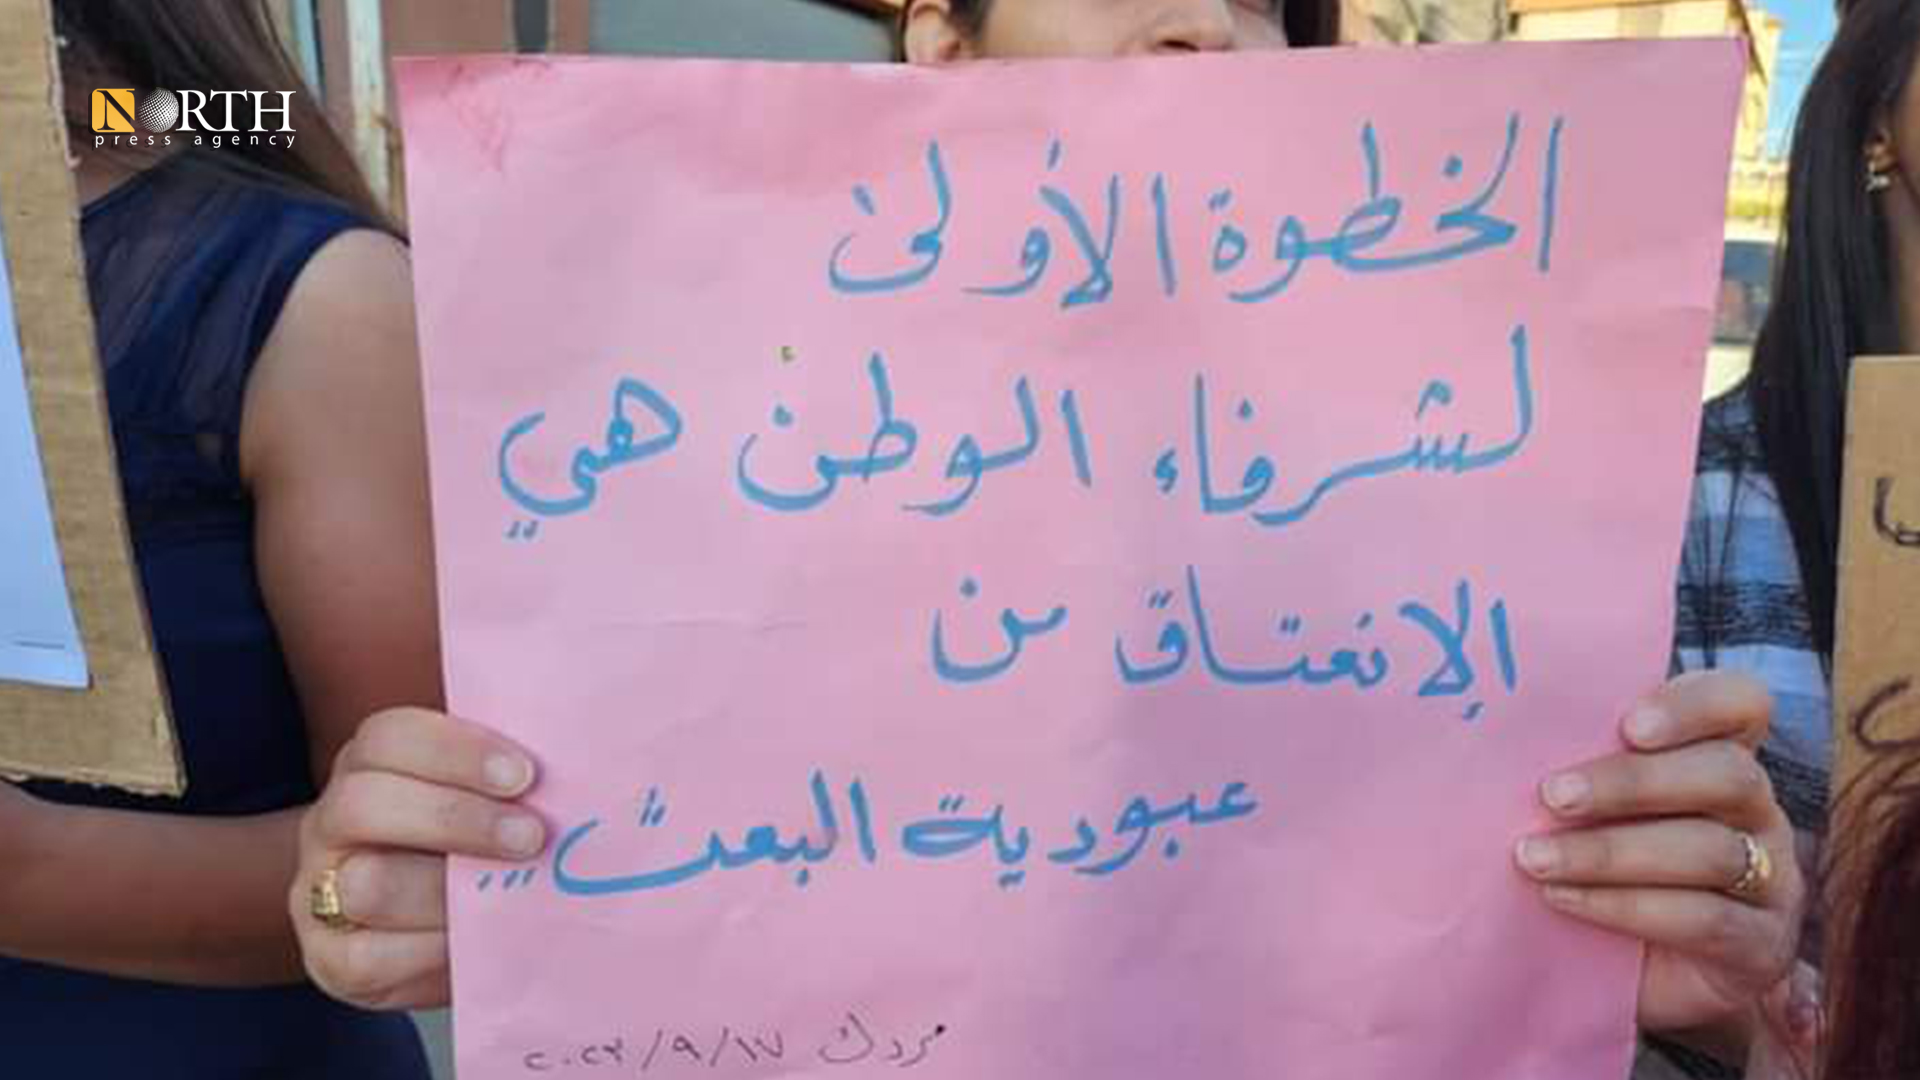 NORTH
press agency
الخطوة الأولى
لشرفاء الوطن هي
الإنعتاق من
عبودية البعث...
مردك ٢٠٢٣/٩/١٧